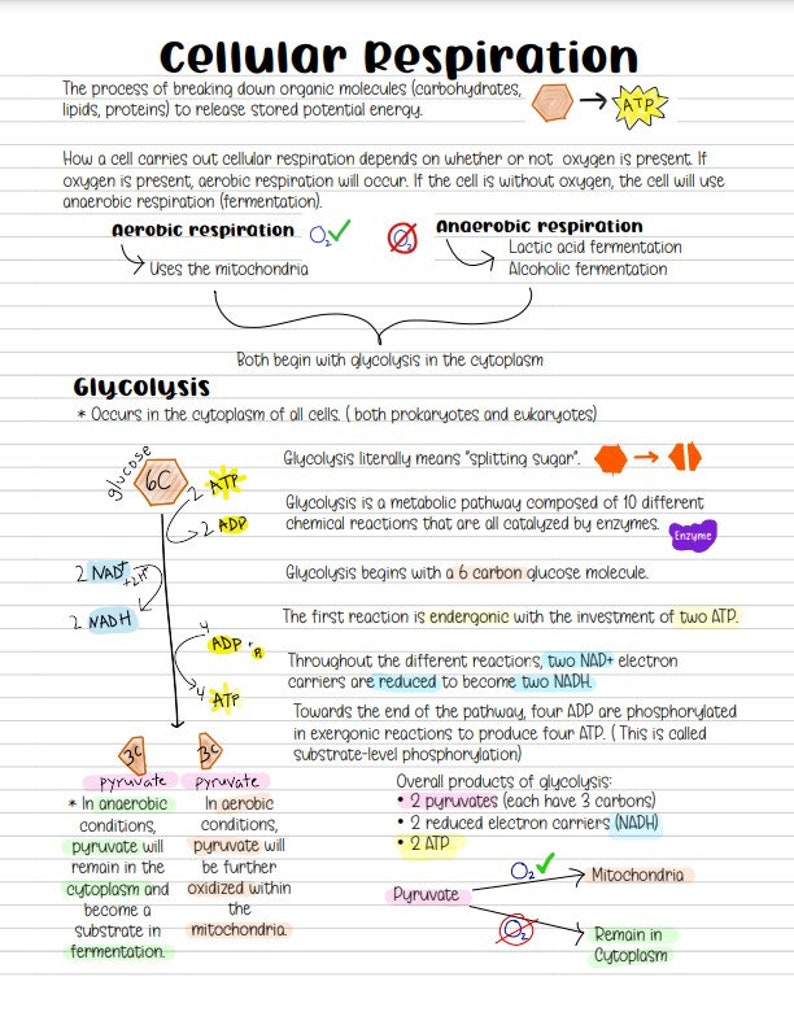 Cellular Respiration
The process of breaking down organic molecules (carbohydrates,
lipids, proteins) to release stored potential energy.
ATP
How a cell carries out cellular respiration depends on whether or not oxygen is present. If
oxygen is present, aerobic respiration will occur. If the cell is without oxygen, the cell will use
anaerobic respiration (fermentation).
Aerobic respiration
O₂
Uses the mitochondria
O₂
Anaerobic respiration
Lactic acid fermentation
Alcoholic fermentation
Both begin with glycolysis in the cytoplasm
Glycolysis
* Occurs in the cytoplasm of all cells. ( both prokaryotes and eukaryotes)
glucose
6C
2 ATP
2 ADP
2 NAD+
+2H+
2 NADH
4
ADP + Pi
4 ATP
3C
3C
pyruvate
pyruvate
Glycolysis literally means "splitting sugar".
Glycolysis is a metabolic pathway composed of 10 different
chemical reactions that are all catalyzed by enzymes.
Enzyme
Glycolysis begins with a 6 carbon glucose molecule.
The first reaction is endergonic with the investment of two ATP.
Throughout the different reactions, two NAD+ electron
carriers are reduced to become two NADH.
Towards the end of the pathway, four ADP are phosphorylated
in exergonic reactions to produce four ATP. ( This is called
substrate-level phosphorylation)
* In anaerobic
conditions,
pyruvate will
remain in the
cytoplasm and
become a
substrate in
fermentation.
In aerobic
conditions,
pyruvate will
be further
oxidized within
the
mitochondria.
Overall products of glycolysis:
• 2 pyruvates (each have 3 carbons)
• 2 reduced electron carriers (NADH)
• 2 ATP
Pyruvate
O₂
Mitochondria
O₂
Remain in
Cytoplasm